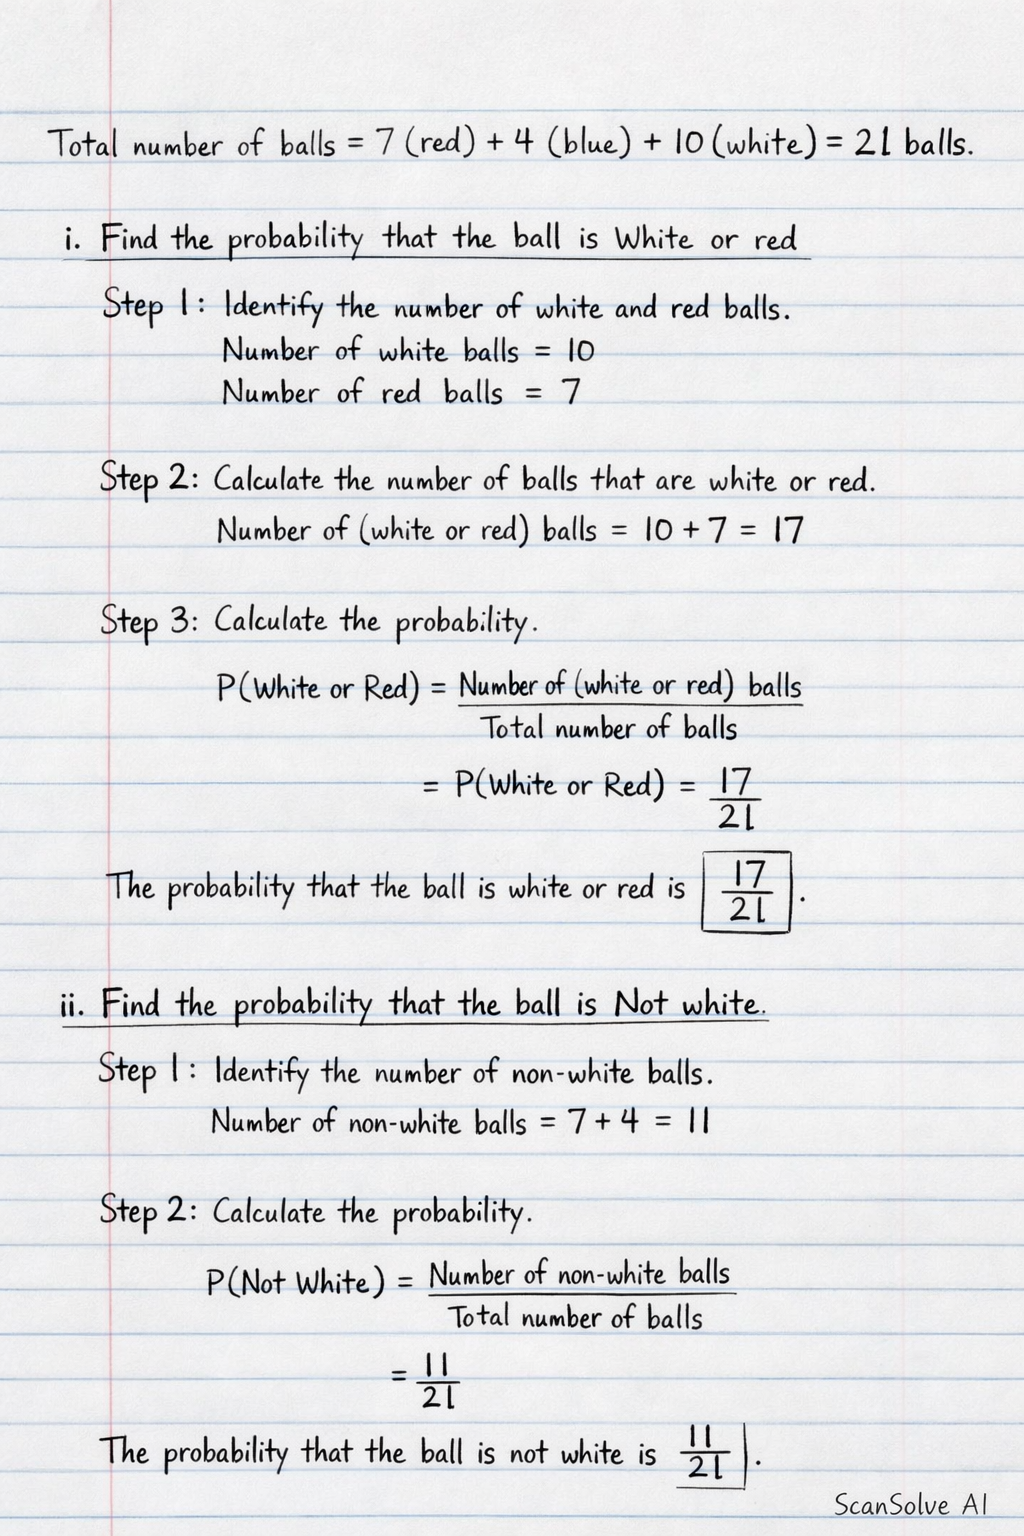 Total number of balls = 7 (red) + 4 (blue) + 10 (white) = 21 balls.
i. Find the probability that the ball is White or red
Step 1: Identify the number of white and red balls.
Number of white balls = 10
Number of red balls = 7
Step 2: Calculate the number of balls that are white or red.
Number of (white or red) balls = 10 + 7 = 17
Step 3: Calculate the probability.
P(White or Red) = Number of (white or red) balls
Total number of balls
= P(White or Red) = 17
21
The probability that the ball is white or red is 17
21 .
ii. Find the probability that the ball is Not white.
Step 1: Identify the number of non-white balls.
Number of non-white balls = 7 + 4 = 11
Step 2: Calculate the probability.
P(Not White) = Number of non-white balls
Total number of balls
= 11
21
The probability that the ball is not white is 11
21 .
ScanSolve AI